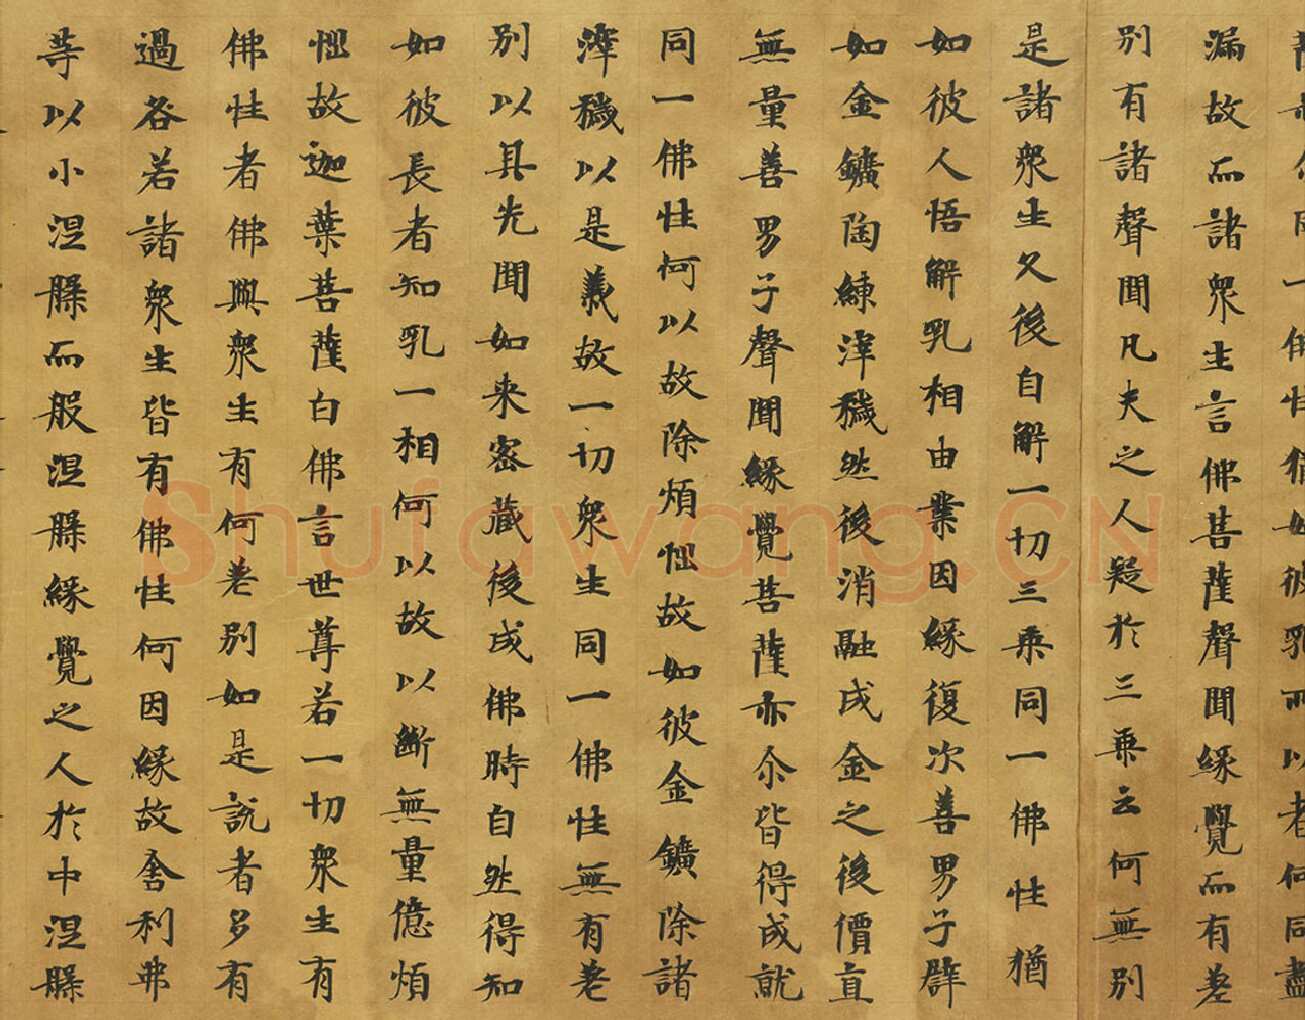 一佛性猶如彼乳所以者何同盡
漏故而諸衆生言佛菩薩聲聞緣覺而有差
別有諸聲聞凡夫之人疑於三乘云何無別
是諸衆生久後自解一切三乘同一佛性猶
如彼人悟解乳相由業因緣復次善男子辟
如金鑛陶練滓穢然後消融成金之後價直
無量善男子聲聞緣覺菩薩亦尒皆得成就
同一佛性何以故除煩惱故如彼金鑛除諸
滓穢以是義故一切衆生同一佛性無有差
別以其先聞如来密藏後成佛時自然得知
如彼長者知乳一相何以故以斷無量億煩
惱故迦葉菩薩白佛言世尊若一切衆生有
佛性者佛與衆生有何差別如是說者多有
過各若諸衆生皆有佛性何因緣故舍利弗
等以小涅槃而般涅槃緣覺之人於中涅槃
Shufawang.CN